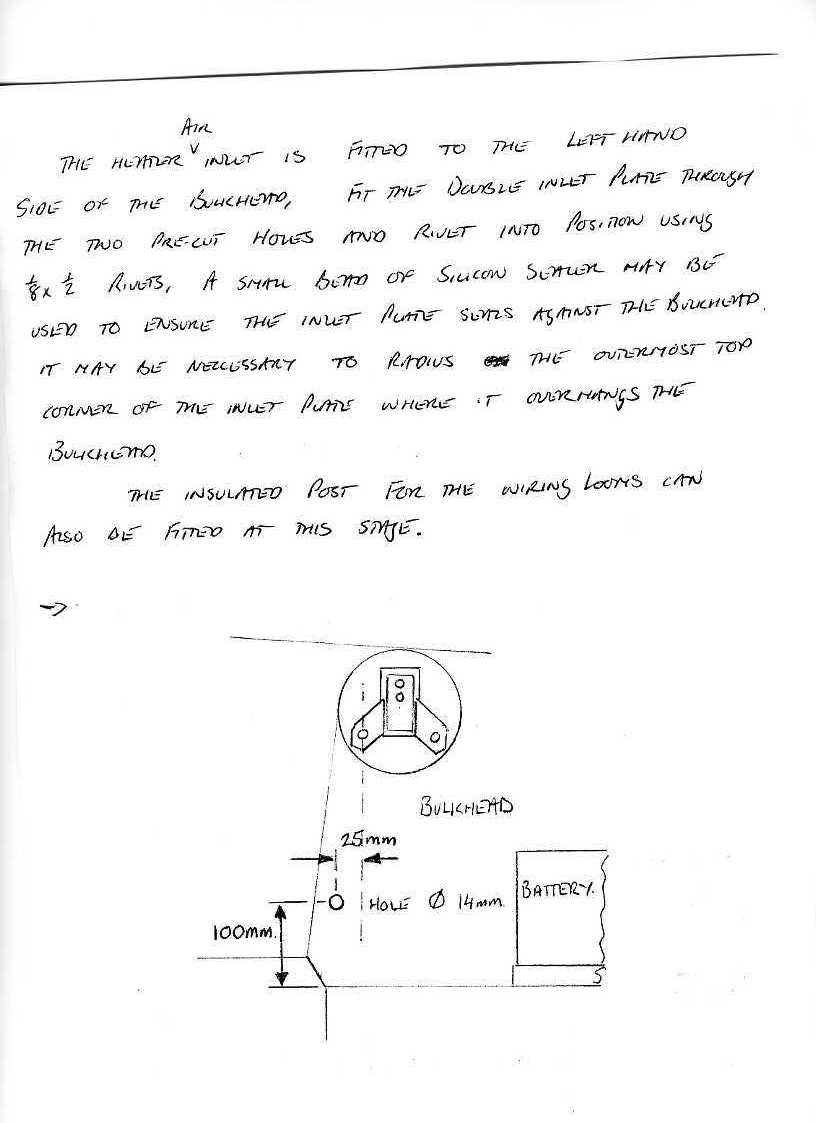 AIR
THE HEATER ∨ INLET IS FITTED TO THE LEFT HAND
SIDE OF THE BULKHEAD, FIT THE DOUBLE INLET PLATE THROUGH
THE TWO PRE-CUT HOLES AND RIVET INTO POSITION USING
1/8 x 1/2 RIVETS, A SMALL BEAD OF SILICON SEALER MAY BE
USED TO ENSURE THE INLET PLATE SEALS AGAINST THE BULKHEAD.
IT MAY BE NECCESSARY TO RADIUS THE OUTERMOST TOP
CORNER OF THE INLET PLATE WHERE IT OVERHANGS THE
BULKHEAD.
THE INSULATED POST FOR THE WIRING LOOMS CAN
ALSO BE FITTED AT THIS STAGE.
→
BULKHEAD
25mm
BATTERY.
HOLE Ø 14mm.
100mm.
S